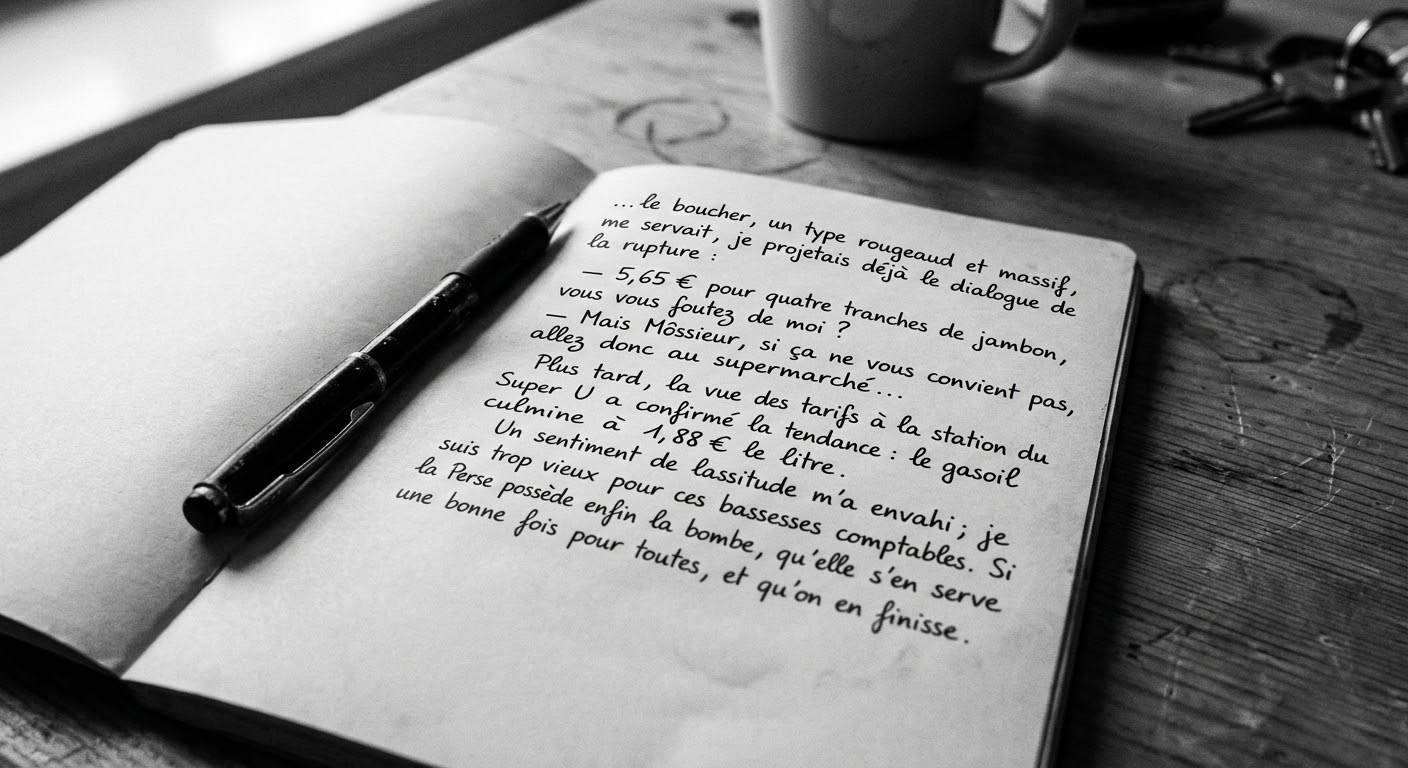 ...le boucher, un type rougeaud et massif,
me servait, je projetais déjà le dialogue de
la rupture :
— 5,65 € pour quatre tranches de jambon,
vous vous foutez de moi ?
— Mais Môssieur, si ça ne vous convient pas,
allez donc au supermarché...
Plus tard, la vue des tarifs à la station du
Super U a confirmé la tendance : le gasoil
culmine à 1,88 € le litre.
Un sentiment de lassitude m'a envahi ; je
suis trop vieux pour ces bassesses comptables. Si
la Perse possède enfin la bombe, qu'elle s'en serve
une bonne fois pour toutes, et qu'on en finisse.